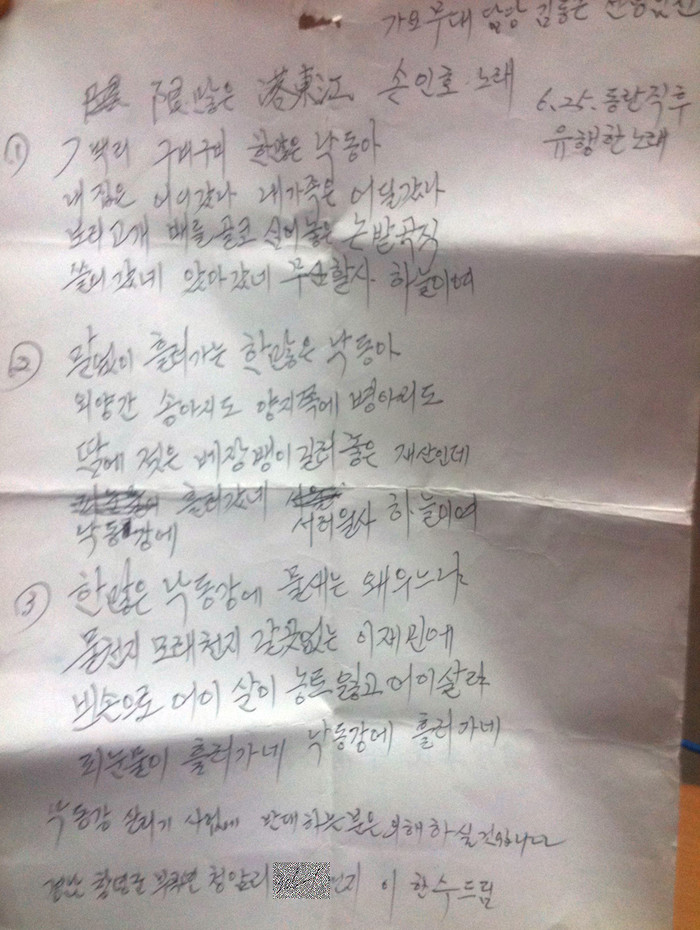 가요무대 담당 김동은 선생님전
限 많은 洛東江 손인호 노래
6.25. 동란직후
유행한 노래
① 7백리 구비구비 한많은 낙동아
내 집은 어디갔나 내가족은 어딜갔나
보리고개 배를 골코 심어놓은 논밭곡식
쓸어갔네 앗아갔네 무심할사 하늘이여
② 말없이 흘러가는 한많은 낙동아
외양간 송아지도 양지쪽에 병아리도
땀에 젖은 베잠뱅이 길러놓은 재산인데
흘러갔네 하늘이여
낙동강에 서러월사
③ 한많은 낙동강에 물새는 왜우느냐
물천지 모래천지 갈곳없는 이재민에
빈손으로 어이 살이 농토 잃고 어이살랴
피눈물이 흘러가네 낙동강에 흘러가네
낙동강 살리기 사업에 반대하는분은 오해하실것입니다
청암리 번지 이한수드림